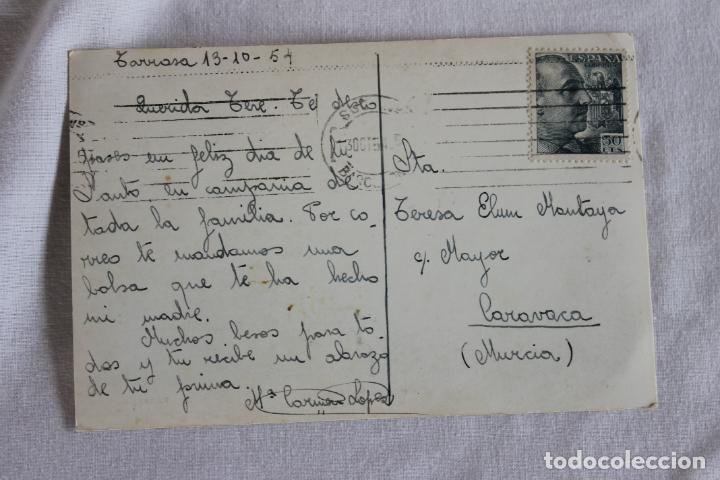 Tarrasa 13-10-54
Querida Tere. Te deseo
pases un feliz dia de tu
Santo en compañia de
toda la familia. Por co-
rreo te mandamos una
bolsa que te ha hecho
mi madre.
Muchos besos para to-
dos y tu recibe un abrazo
de tu prima.
Mª Carmen Lopez
ESPAÑA
50
CTS
Sta.
Teresa Elum Montoya
c/ Mayor
Caravaca
(Murcia)
todocoleccion